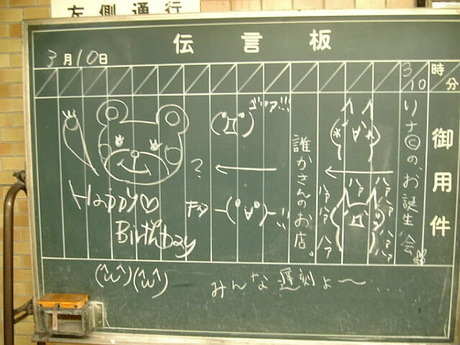 左側通行
伝言板
3月10日
時分
3/10
御用件
リナ©の、お誕生会
ハァ ハァ ハァ
ハァ ハァ ハァ
誰かさんのお店。
(*´∀`*)
ゴゴァ!!!
?
Happy♡
Birthday
(^ω^)(^ω^)
みんな遅刻よ〜....